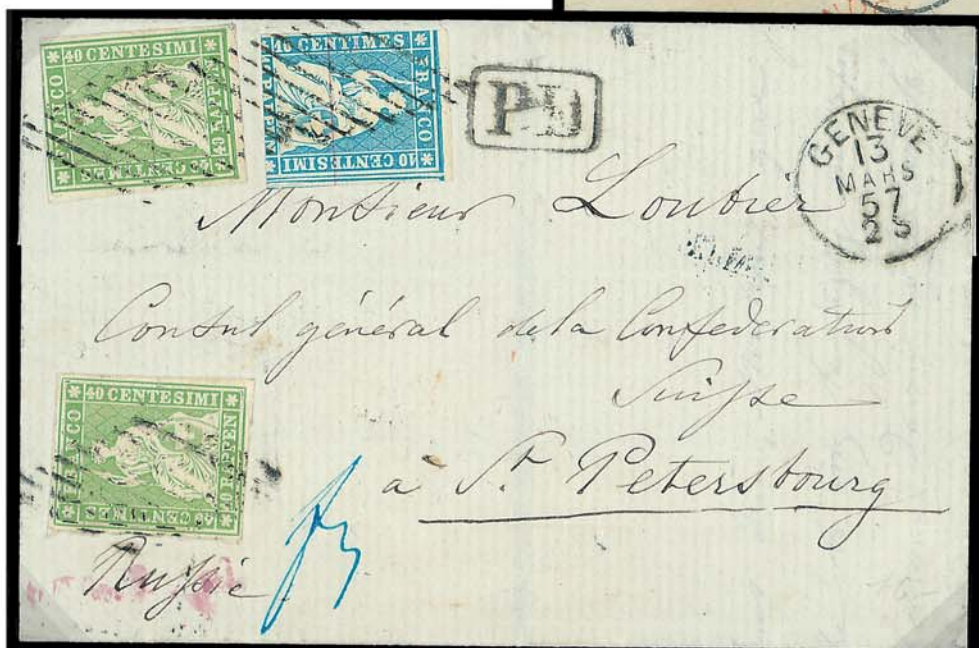 40 CENTESIMI
FRANCO
40 RAPPEN
40 CENTIMES
10 CENTIMES
FRANCO
RAPPEN
10 CENTESIMI
PD
GENÈVE
13
MARS
57
2 S
Monsieur Loubier
Consul général de la Confederation
Suisse
à St. Petersbourg
Russie
40 CENTESIMI
FRANCO
40 RAPPEN
40 CENTIMES